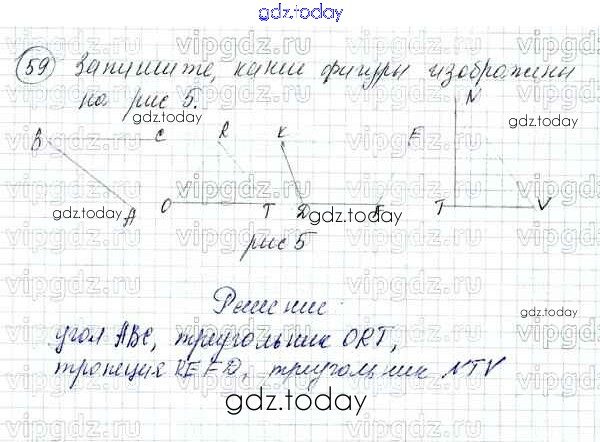 gdz.today
59 Запишите, какие фигуры изображены
на рис 5.
N
gdz.today
gdz.today
B C R K F
A O T D E T V
gdz.today
gdz.today
gdz.today
рис 5
Решение
угол ABC, треугольник ORT,
трапеция KEFD, треугольник NTV
gdz.today
vipgdz.ru